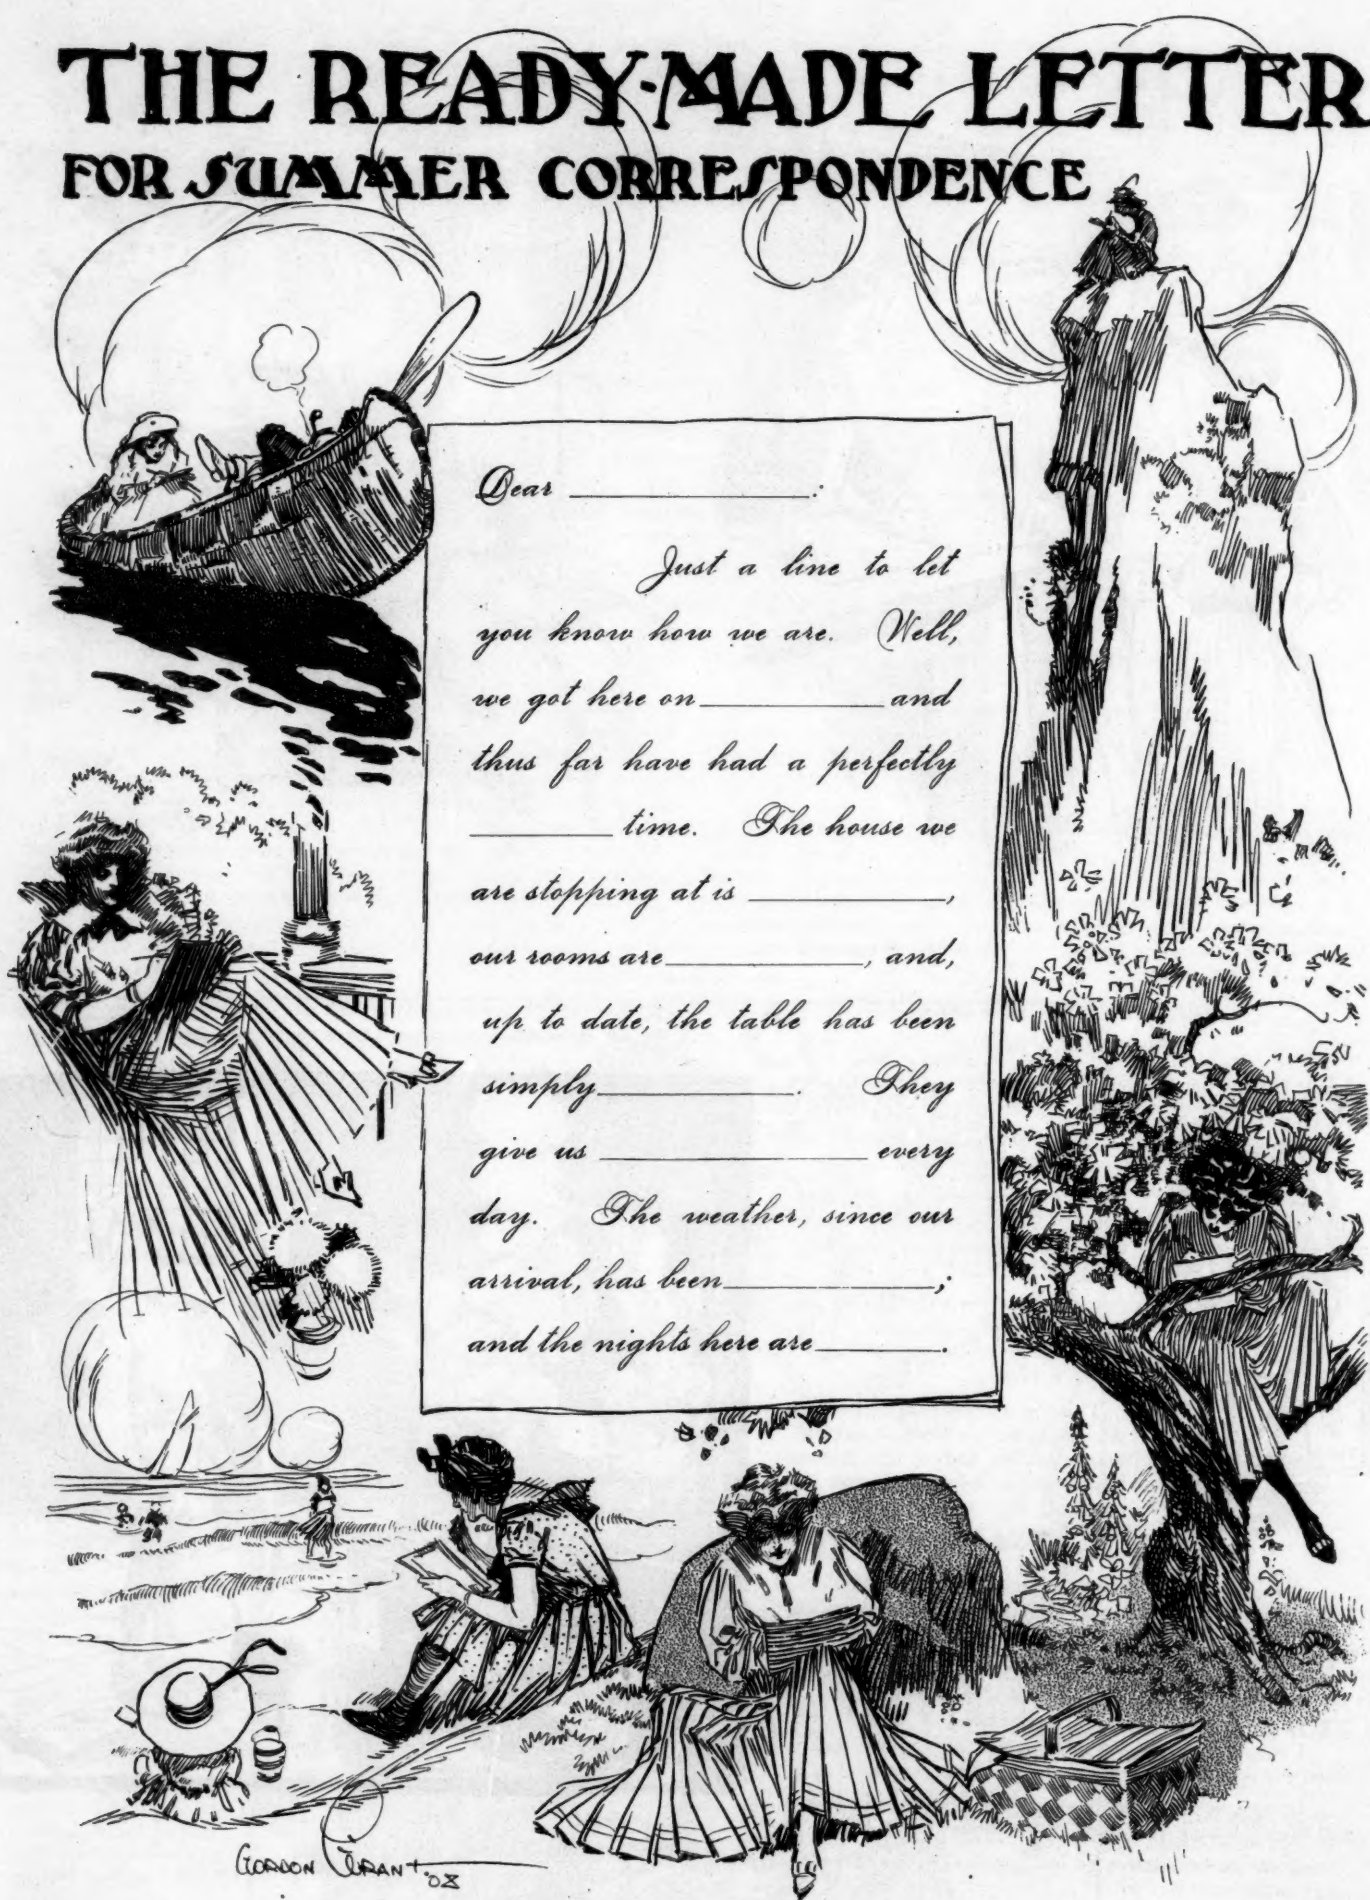 THE READY-MADE LETTER
FOR SUMMER CORRESPONDENCE
Dear ____________:
Just a line to let
you know how we are. Well,
we got here on ____________ and
thus far have had a perfectly
____________ time. The house we
are stopping at is ____________,
our rooms are ____________, and,
up to date, the table has been
simply ____________. They
give us ____________ every
day. The weather, since our
arrival, has been ____________;
and the nights here are ____________.
GORDON GRANT '08